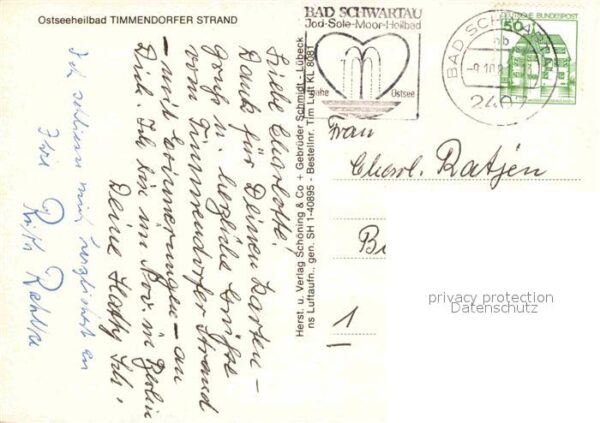 Ostseeheilbad TIMMENDORFER STRAND
BAD SCHWARTAU
Jod-Sole-Moor-Heilbad
nahe Ostsee
BAD SCHWARTAU
2407
DEUTSCHE BUNDESPOST
50
Liebe Charlotte!
Dank für Deinen Karten-
gruß u. herzliche Grüße
vom Timmendorfer Strand
- mit Erinnerungen - an
Dich. Ich bin im Nov. in Berlin
Deine
Ich schließe mich herzlichst an
Ihre
Herst. u. Verlag Schöning & Co + Gebrüder Schmidt - Lübeck
ns Luftaufn., gen. SH 1-40895 - Bestellnr. Tim Luft KL 8081
Frau
Charl. Ratjen
B
1
privacy protection
Datenschutz